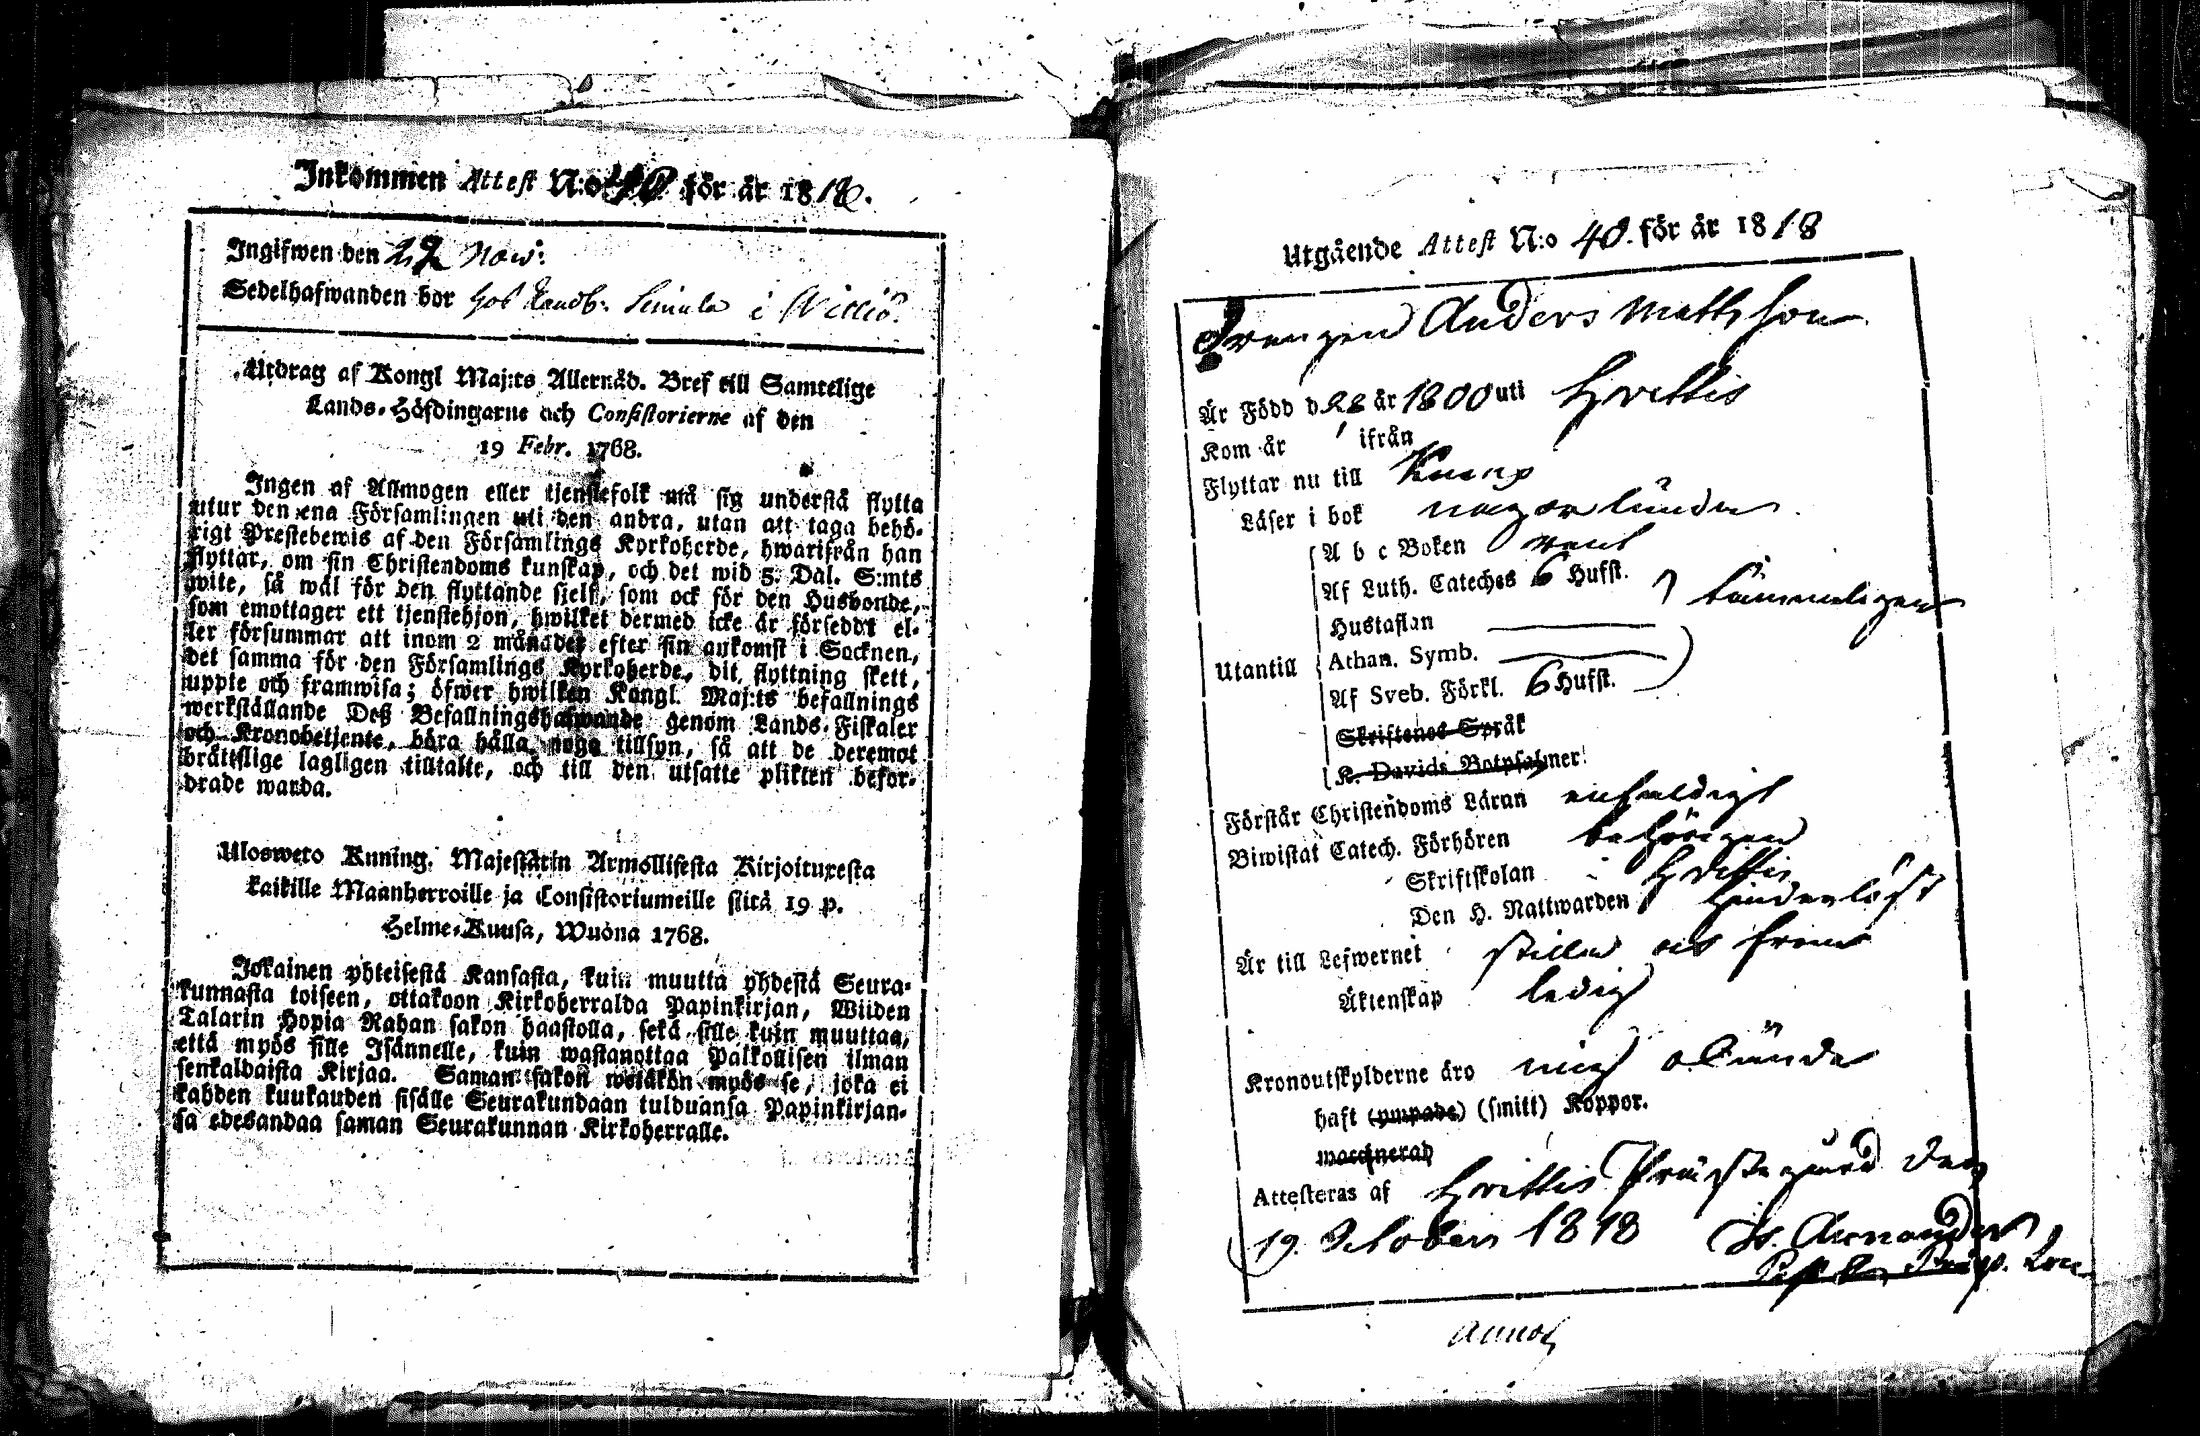 Inkommen Attest N:o 40. för år 1818.
Ingifwen den 22 Nov:
Sedelhafwanden bor hos Landb: Simula i
Utdrag af Kongl Maj:ts Allernåd. Bref till Samtelige
Lands-Höfdingarne och Consistorierne af den
19 Febr. 1768.
Ingen af Allmogen eller tjenstefolk må sig understå flytta
utur den ena Församlingen uti den andra, utan att taga behö-
rigt Prestebewis af den Församlings Kyrkoherde, hwarifrån han
flyttar, om sin Christendoms kunskap, och det wid 5. Dal. S:mts
wite, så wäl för den flyttande sielf, som ock för den Husbonde,
som emottager ett tjenstehjon, hwilket dermed icke är förseddt el-
ler försummar att inom 2 månader efter sin ankomst i Socknen,
det samma för den Församlings Kyrkoherde, dit flyttning skett,
uppte och framwisa; öfwer hwilken Kongl. Maj:ts befallnings
werkställande Deß Befallningshafwande genom Lands-Fiskaler
och Kronobetjente, böra hålla noga tillsyn, så att de deremot
bråttslige lagligen tilltalte, och till den utsatte plikten befor-
drade warda.
Ulosweto Kuning. Majestätin Armollisesta Kirjoituxesta
kaikille Maanherroille ja Consistoriumeille siitä 19 p.
Helme-Kuusa, Wuona 1768.
Jokainen yhteisestä Kansasta, kuin muutta yhdestä Seura-
kunnasta toiseen, ottakoon Kirkoherralda Papinkirjan, Wiiden
Talarin Hopia Rahan sakon haastolla, sekä sille kuin muuttaa,
että myös sille Isännelle, kuin wastanottaa Palkollisen ilman
senkaldaista Kirjaa. Saman sakon wetäkön myös se, joka ei
kahden kuukauden sisälle Seurakundaan tulduansa Papinkirjan-
sa edesandaa saman Seurakunnan Kirkoherralle.
Utgående Attest N:o 40. för år 1818
Drengen Anders Matts son
Är Född d 28 år 1800 uti Hvittis
Kom år ifrån
Flyttar nu till Kumo
Läser i bok någorlunda
A b c Boken rent
Af Luth. Cateches 6 Hufst. } tämmeligen
Hustaflan
Utantill Athan. Symb.
Af Sveb. Förkl. 6 Hufst.
Skriftenes Språk
K. Davids Botpsalmer
Förstår Christendoms Läran enfaldigt
Biwistat Catech. Förhören behörigen
Skriftskolan i Hvittis
Den H. Nattwarden hinderlöst
Är till Lefwernet stilla och from
Äktenskap ledig
Kronoutskylderne äro mig okunde
haft (ympade) (smitt) Koppor.
waccinerad
Attesteras af Hvittis Prästegård den
19. October 1818